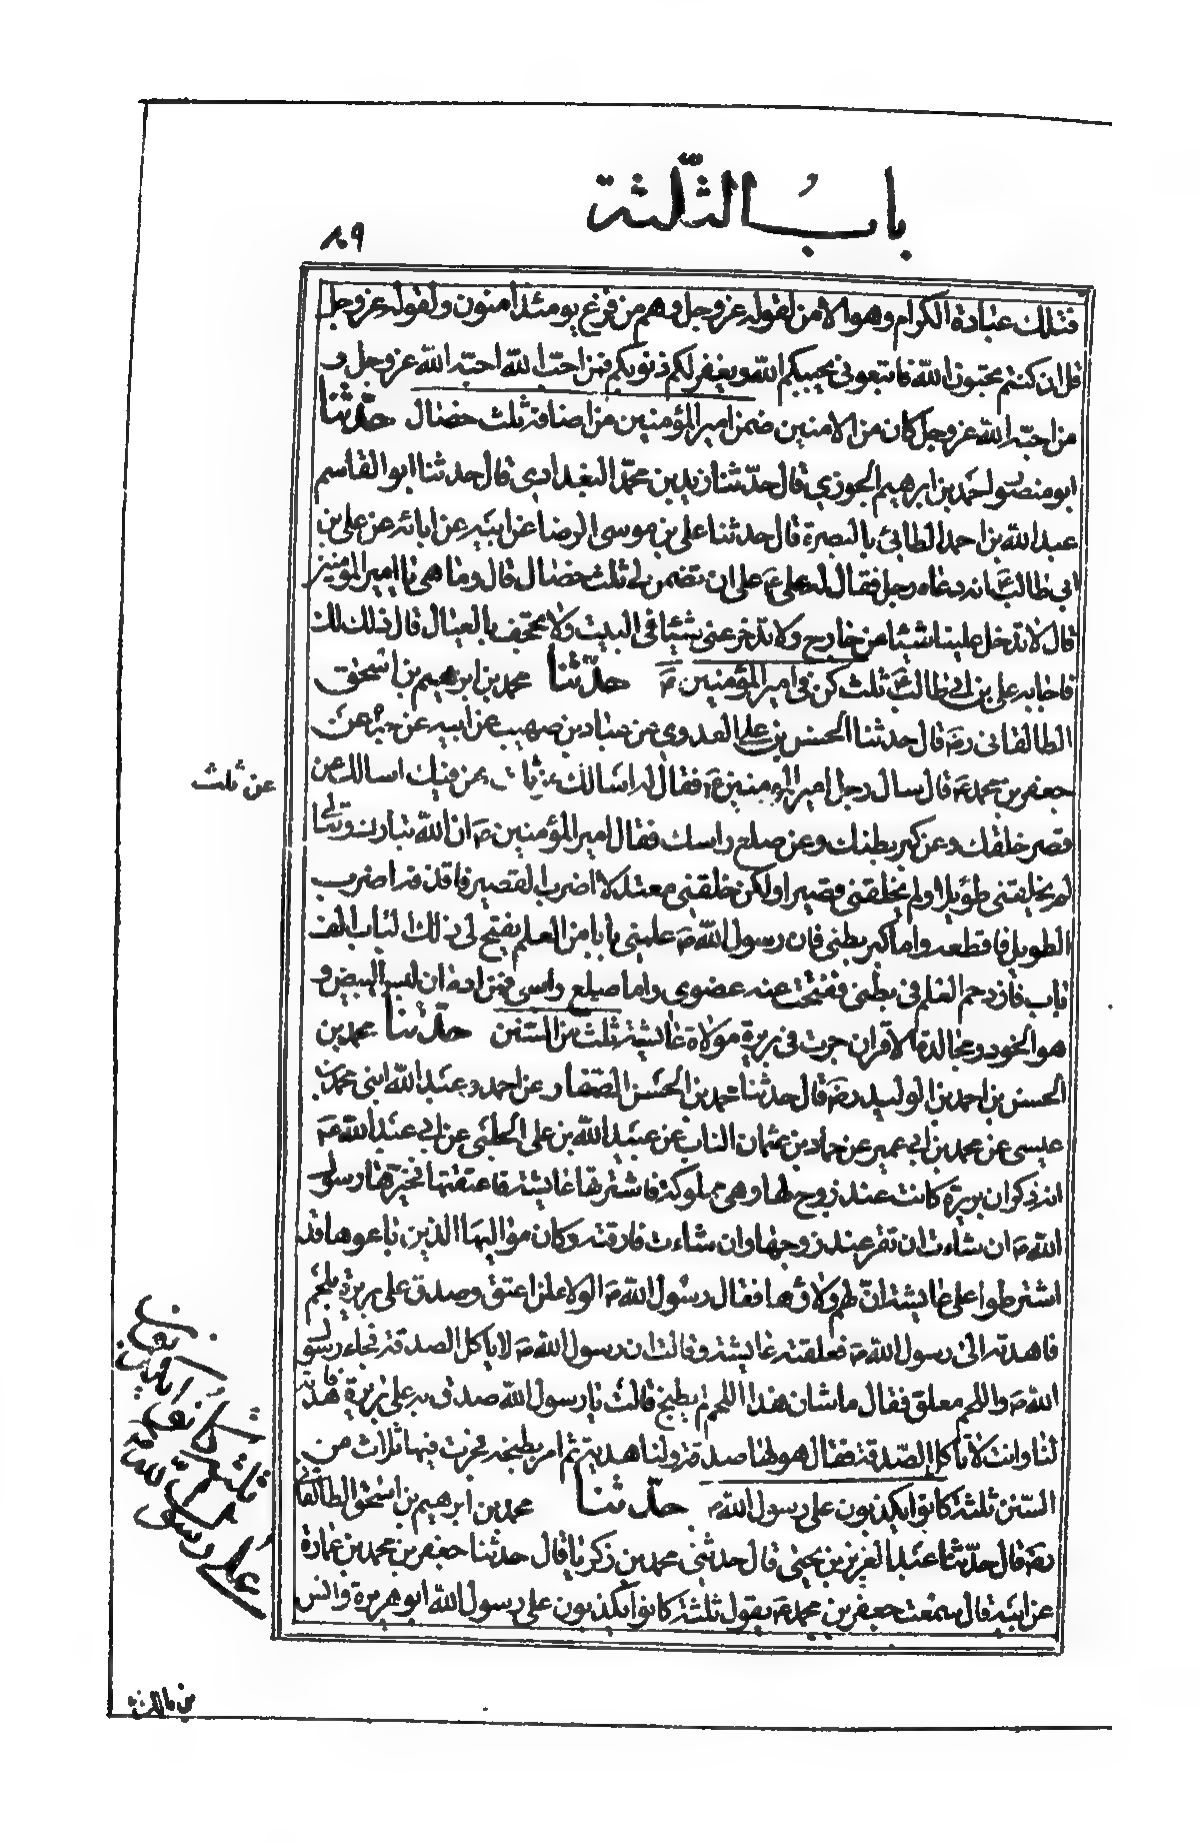 باب الثلثة
٨٩
فتلك عبادة الكرام وهو الامن لقوله عز وجل وهم من فزع يومئذ امنون ولقوله عز وجل
قل ان كنتم تحبون الله فاتبعوني يحببكم الله ويغفر لكم ذنوبكم فمن احب الله احبه الله عز وجل و
من احبه الله عز وجل كان من الامنين ضمن امير المؤمنين من اضافه ثلث خصال حدّثنا
ابو منصور احمد بن ابرهيم الجوزي قال حدّثنا زيد بن محمد البغدادي قال حدثنا ابو القاسم
عبد الله بن احمد الطائي بالبصرة قال حدثنا علي بن موسى الرضا عن ابيه عن ابائه عن علي بن
ابي طالب ع انه دعاه رجل فقال له علي ع على ان تضمن لي ثلث خصال قال وما هي يا امير المؤمنين
قال لا تدخل علينا شيئا من خارج ولا تدخر عني شيئا في البيت ولا تجحف بالعيال قال ذلك لك
فاجابه علي بن ابي طالب ع ثلث كن في امير المؤمنين ع حدّثنا محمد بن ابرهيم بن اسحق
الطالقاني رضه قال حدثنا الحسن بن علي العدوي عن عباد بن صهيب عن ابيه عن جده عن
جعفر بن محمد ع قال سال رجل امير المؤمنين ع فقال له اسالك عن ثلث هن فيك اسالك عن
قصر خلقك وعن كبر بطنك وعن صلع راسك فقال امير المؤمنين ع ان الله تبارك وتعالى
لم يخلقني طويلا ولم يخلقني قصيرا ولكن خلقني معتدلا اضرب القصير فاقده واضرب
الطويل فاقطعه واما كبر بطني فان رسول الله ص علمني بابا من العلم يفتح لي ذلك الباب الف
باب فازدحم العلم في بطني فنفخت عنه عضوى واما صلع راسي فمن ادمان لبس البيض و
هو الخود ومجالدة الاقران جرت في بريرة مولاة عايشة ثلث من السنن حدّثنا محمد بن
الحسن بن احمد بن الوليد رضه قال حدثنا محمد بن الحسن الصفار عن احمد وعبد الله ابني محمد بن
عيسى عن محمد بن ابي عمير عن حماد بن عثمان الناب عن عبيد الله بن علي الحلبي عن ابي عبد الله ع
انه ذكر ان بريرة كانت عند زوج لها وهي مملوكة فاشترتها عايشة فاعتقتها فخيرها رسول
الله ص ان شاءت ان تقر عند زوجها وان شاءت فارقته وكان مواليها الذين باعوها قد
اشترطوا على عايشة ان لهم ولاؤها فقال رسول الله ص الولاء لمن اعتق وصدق على بريرة بلحم
فاهدته الى رسول الله ص فعلقته عايشة وقالت ان رسول الله ص لا ياكل الصدقة فجاء رسول
الله ص واللحم معلق فقال ما شان هذا اللحم لم يطبخ قالت يا رسول الله صدق به على بريرة فاهدته
لنا وانت لا تاكل الصدقة فقال هو لها صدقة ولنا هدية ثم امر بطبخه فجرت فيها ثلاث من
السنن ثلثة كانوا يكذبون على رسول الله ص حدّثنا محمد بن ابرهيم بن اسحق الطالقاني
رضه قال حدّثنا عبد العزيز بن يحيى قال حدثني محمد بن زكريا قال حدثنا جعفر بن محمد بن عمارة
عن ابيه قال سمعت جعفر بن محمد ع يقول ثلثة كانوا يكذبون على رسول الله ابو هريرة وانس
عن ثلث
ثلثة كانوا يكذبون
على رسول الله
بن مالك